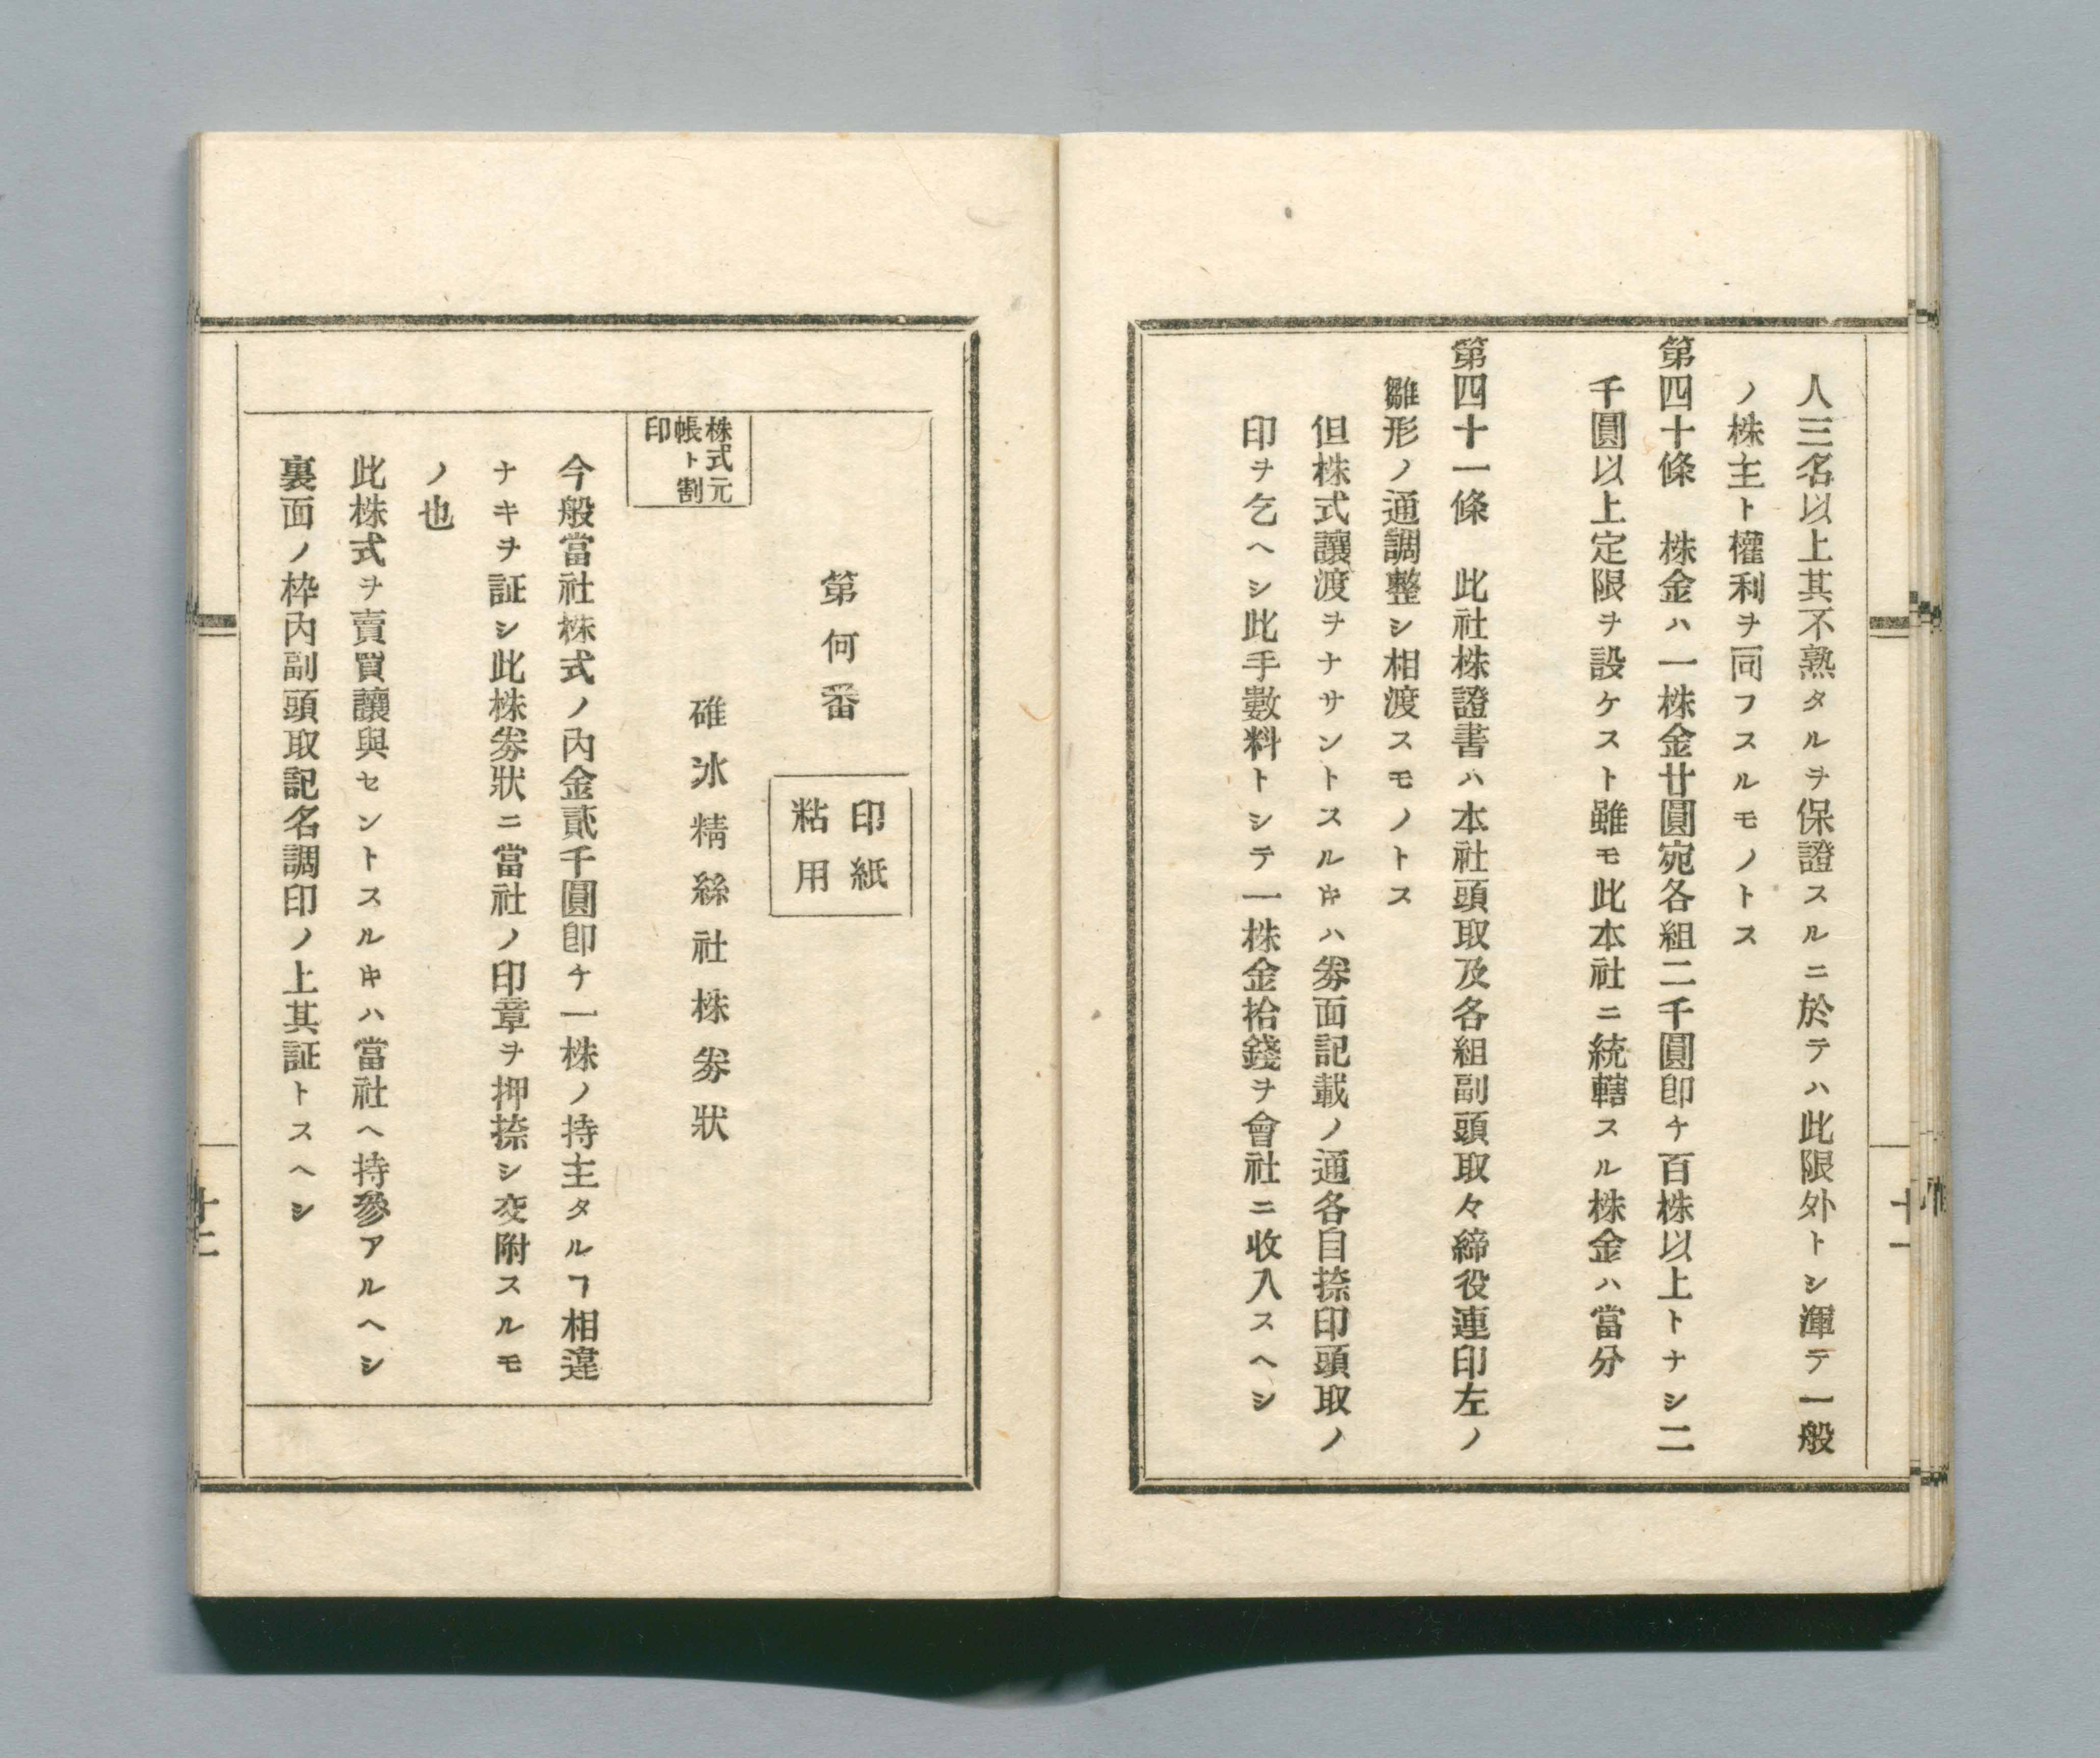 人三名以上其不熟タルヲ保證スルニ於テハ此限外トシ渾テ一般
ノ株主ト權利ヲ同フスルモノトス
第四十條　株金ハ一株金廿圓宛各組二千圓卽ケ百株以上トナシ二
千圓以上定限ヲ設ケスト雖モ此本社ニ統轄スル株金ハ當分
第四十一條　此社株證書ハ本社頭取及各組副頭取々締役連印左ノ
雛形ノ通調整シ相渡スモノトス
但株式讓渡ヲナサントスルヰハ劵面記載ノ通各自捺印頭取ノ
印ヲ乞ヘシ此手數料トシテ一株金拾錢ヲ會社ニ收入スヘシ
十一
第何番
印紙
粘用
碓氷精絲社株劵狀
株式元
帳ト割
印
今般當社株式ノ內金貳千圓卽ケ一株ノ持主タルヿ相違
ナキヲ証シ此株劵狀ニ當社ノ印章ヲ押捺シ交附スルモ
ノ也
此株式ヲ賣買讓與セントスルヰハ當社ヘ持參アルヘシ
裏面ノ枠內副頭取記名調印ノ上其証トスヘシ
十二